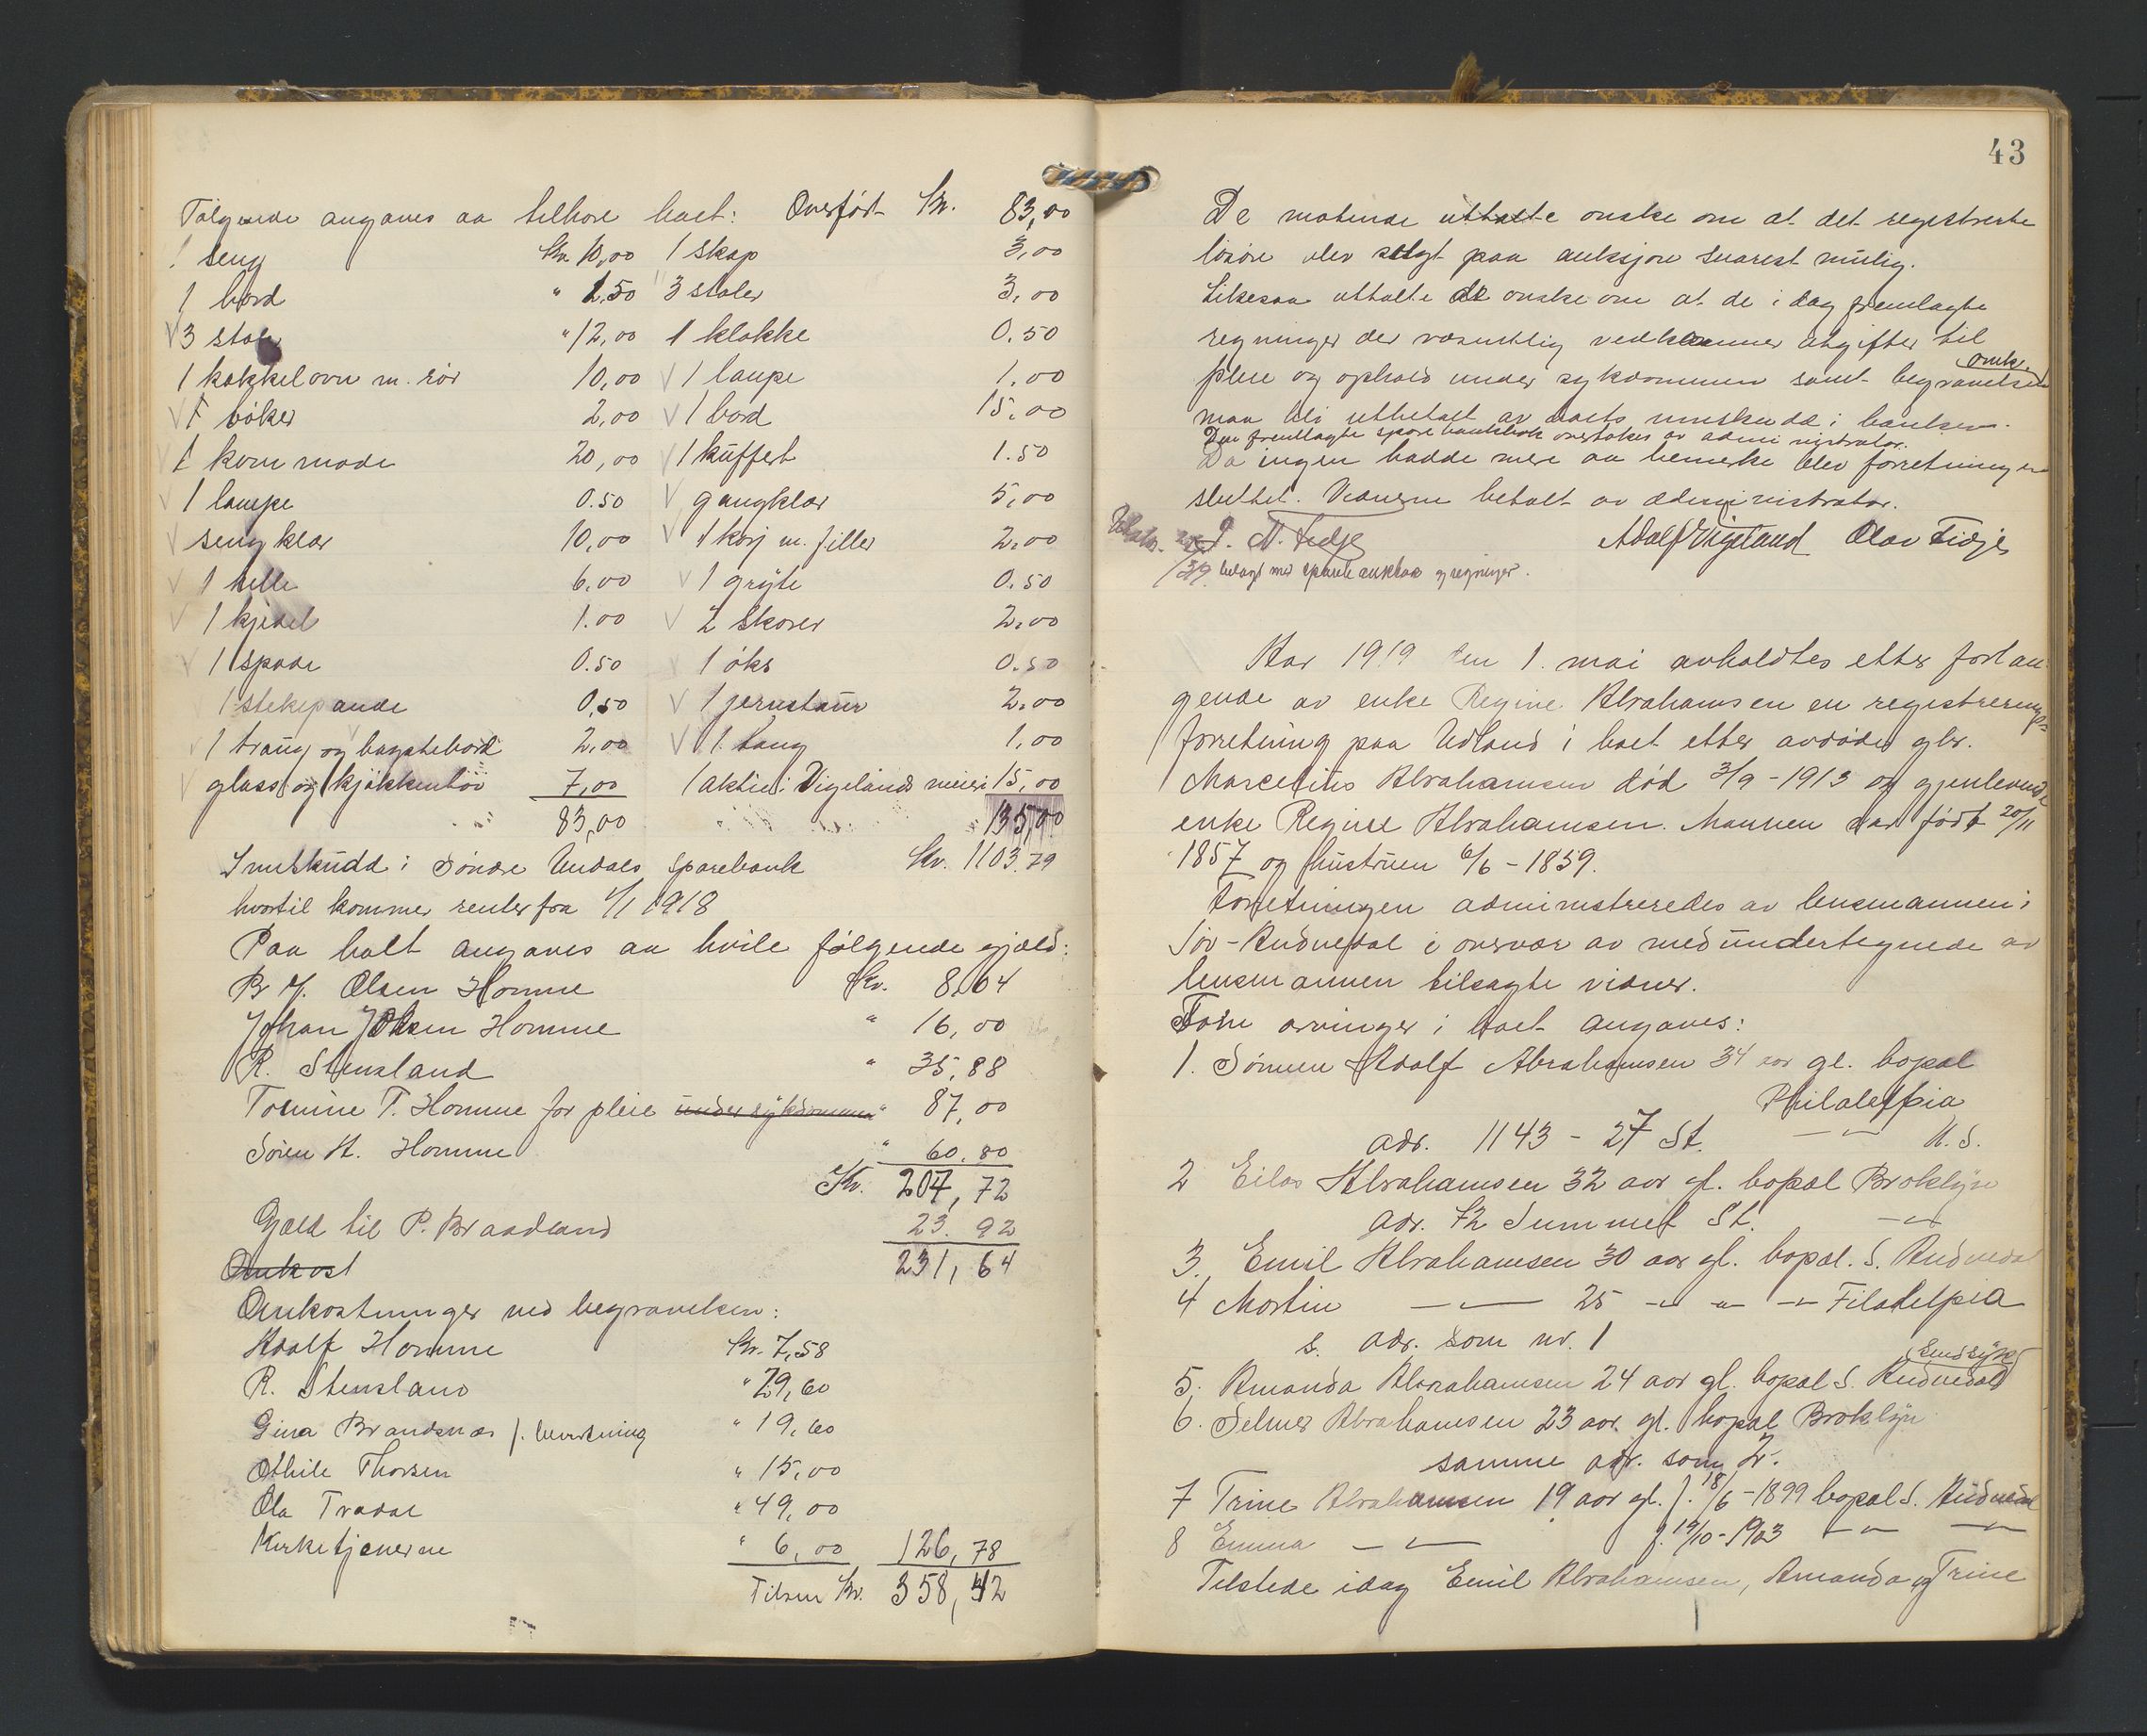 Følgende angaves aa tilhøre boet: Overført Kr. 83,00
1 seng Kr. 10,00 1 skap 3,00
1 bord " 1,50 3 stoler 3,00
3 stoler " 12,00 1 klokke 0.50
1 kakkelovn m. rør 10,00 1 lampe 1.00
bøker 2,00 1 bord 15.00
1 kommode 20,00 1 kuffert 1.50
1 lampe 0.50 gangklær 5,00
sengklær 10,00 1 korj m. filler 2,00
1 helle 6,00 1 gryte 0.50
1 kjedel 1.00 2 skorer 2,00
1 spade 0.50 1 øks 0.50
1 stekepande 0,50 1 jernstaur 2.00
1 traug og bagstebord 2,00 1 tang 1,00
glass og kjøkkentøi 7,00 1 aktie i Vigelands meieri 15,00
83,00 135,00
Innskudd i Søndre Undals sparebank Kr. 1103.79
hvortil kommer renter fra 1/1 1918
Paa boet angaves aa hvile følgende gjæld:
Br. J. Olsen Homme Kr. 8,04
Johan Olsen Homme " 16,00
R. Stensland " 35,88
Tomine T. Homme for pleie under sykdommen " 87,00
Søren A. Homme " 60,80
Kr. 207,72
Gjæld til P. Braadland 23.92
Omkost 231,64
Omkostninger ved begravelsen:
Adolf Homme Kr. 7,58
R. Stensland " 29,60
Gina Brandsnes f. bevertning " 19,60
Othile Thorsen " 15,00
Ola Tradal " 49,00
Kirketjenerne " 6,00 126,78
Tilsm Kr. 358,42
43
De møtende uttalte ønske om at det registrerte
løsøre blev solgt paa auksjon snarest mulig.
Likesaa uttalte de ønske om at de i dag fremlagte
regninger der væsentlig vedkommer utgifter til
omk.
pleie og ophold under sykdommen samt begravelsen
maa bli utbetalt av boets innskudd i banken.
Den fremlagte sparebankbok overtokes av administrator.
Da ingen hadde mere aa bemerke blev forretningen
sluttet. Vidnerne betalt av administrator.
A. Fedje Adolf Vigeland Olav Fidje
bilagt med sparebankbok og regninger.
Aar 1919 den 1. mai avholdtes etter forlan-
gende av enke Regine Abrahamsen en registrerings-
forretning paa Udland i boet etter avdøde gbr.
Marcelius Abrahamsen død 3/9-1913 og gjenlevende
enke Regine Abrahamsen. Mannen var født 20/11
1857 og hustruen 6/6-1859.
Forretningen administreredes av lensmannen i
Sør-Audnedal i overvær av medundertegnede av
lensmannen tilsagte vidner.
Som arvinger i boet angaves:
1. Sønnen Adolf Abrahamsen 34 aar gl. bopæl
Philaleffia
adr. 1143 - 27 St. — " — U.S.
2 Eilas Abrahamsen 32 aar gl. bopæl Broklyn
adr. 72 Summet St. — " —
3. Emil Abrahamsen 30 aar gl. bopæl. S. Audnedal
4 Martin — " — 25 — " — " — " — Filadelpia
s. adr. som nr. 1
5. Amanda Abrahamsen 24 aar gl. bopæl S. Audnedal
6. Selmer Abrahamsen 23 aar gl. bopæl Broklyn
samme adr. som 2.
7 Trine Abrahamsen 19 aar gl. f. 18/6-1899 bopæl S. Audnedal
8 Emma — " — f. 19/10-1903 — " — — " —
Tilstede idag Emil Abrahamsen, Amanda og Trine